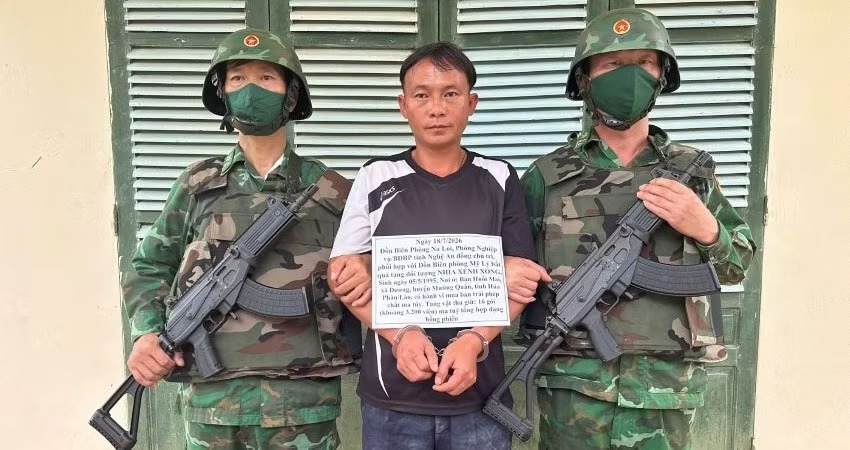 asics
Ngày 18/7/2026
Đồn Biên Phòng Na Loi, Phòng Nghiệp
vụ/BĐBP tỉnh Nghệ An đồng chủ trì,
phối hợp với Đồn Biên phòng Mỹ Lý bắt
quả tang đối tượng NHIA XENH XONG,
Sinh ngày 05/5/1995, Nơi ở: Bản Huổi Mai,
xã Dương, huyện Mường Quắn, tỉnh Hủa
Phăn/Lào, có hành vi mua bán trái phép
chất ma túy. Tang vật thu giữ: 16 gói
(khoảng 3.200 viên) ma tuý tổng hợp dạng
hồng phiến